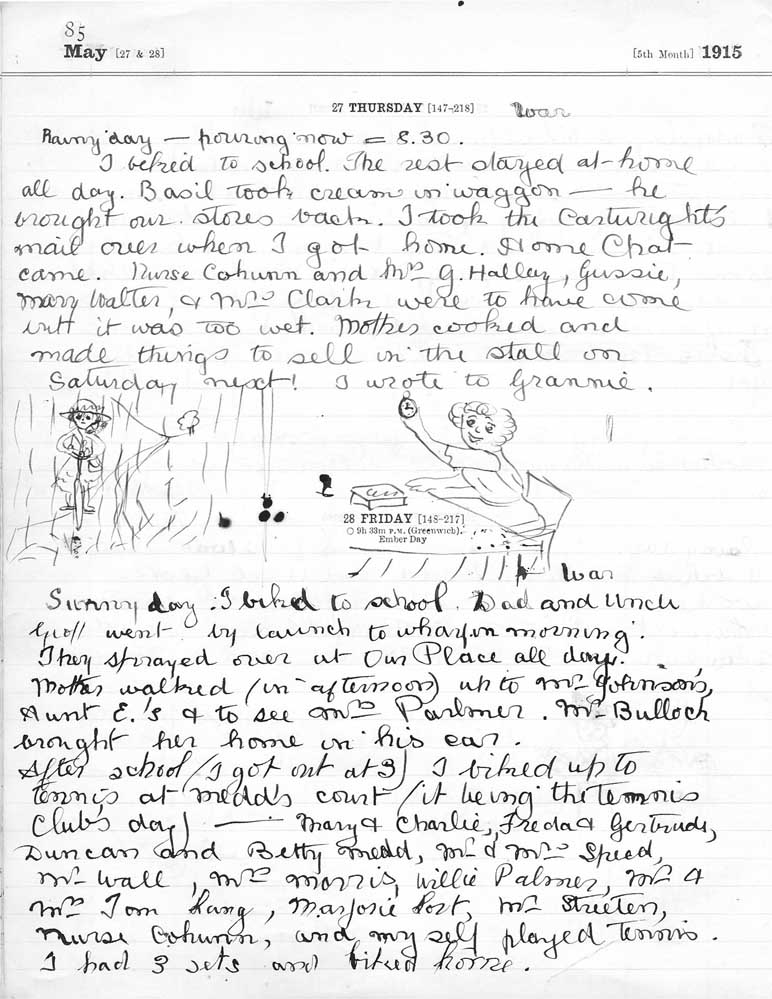 85
May [27 & 28] [5th Month] 1915
27 THURSDAY [147-218] War
Rainy day — pouring now = 8.30.
I biked to school. The rest stayed at home
all day. Basil took cream in waggon — he
brought our stores back. I took the Cartwright's
mail over when I got home. Home Chat
came. Nurse Cohunn and Mrs G. Hallay, Gussie,
Mary Walter, & Mrs Clark were to have come
but it was too wet. Mother cooked and
made things to sell in the stall on
Saturday next! I wrote to Grannie.
28 FRIDAY [148-217]
○ 9h 33m P.M. (Greenwich).
Ember Day
War
Sunny day. I biked to school. Dad and Uncle
Goff went by launch to wharf in morning.
They sprayed over at Our Place all day.
Mother walked (in afternoon) up to Mrs Johnson's,
Aunt E.'s & to see Mrs Parlmer. Mr Bulloch
brought her home in his car.
After school (I got out at 3) I biked up to
tennis at Medd's court (it being the tennis
Club's day) — Mary & Charlie, Freda & Gertrude,
Duncan and Betty Medd, Mr & Mrs Speed,
Mr Wall, Mrs Morris, Willie Palmer, Mr &
Mrs Tom Lang, Marjorie Post, Mr Streeten,
Nurse Cohunn, and my self played tennis.
I had 3 sets and biked home.